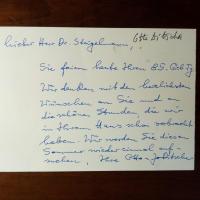 Lieber Herr Dr. Stegelmann,
Sie feiern heute Ihren 85. Geb. Tg
Wir denken mit den herzlichsten
Wünschen an Sie und an
die schönen Stunden, die wir
in Ihrem Haus schon verbracht
haben. Wir werden Sie diesen
Sommer wieder einmal auf-
suchen. Ihre Otto